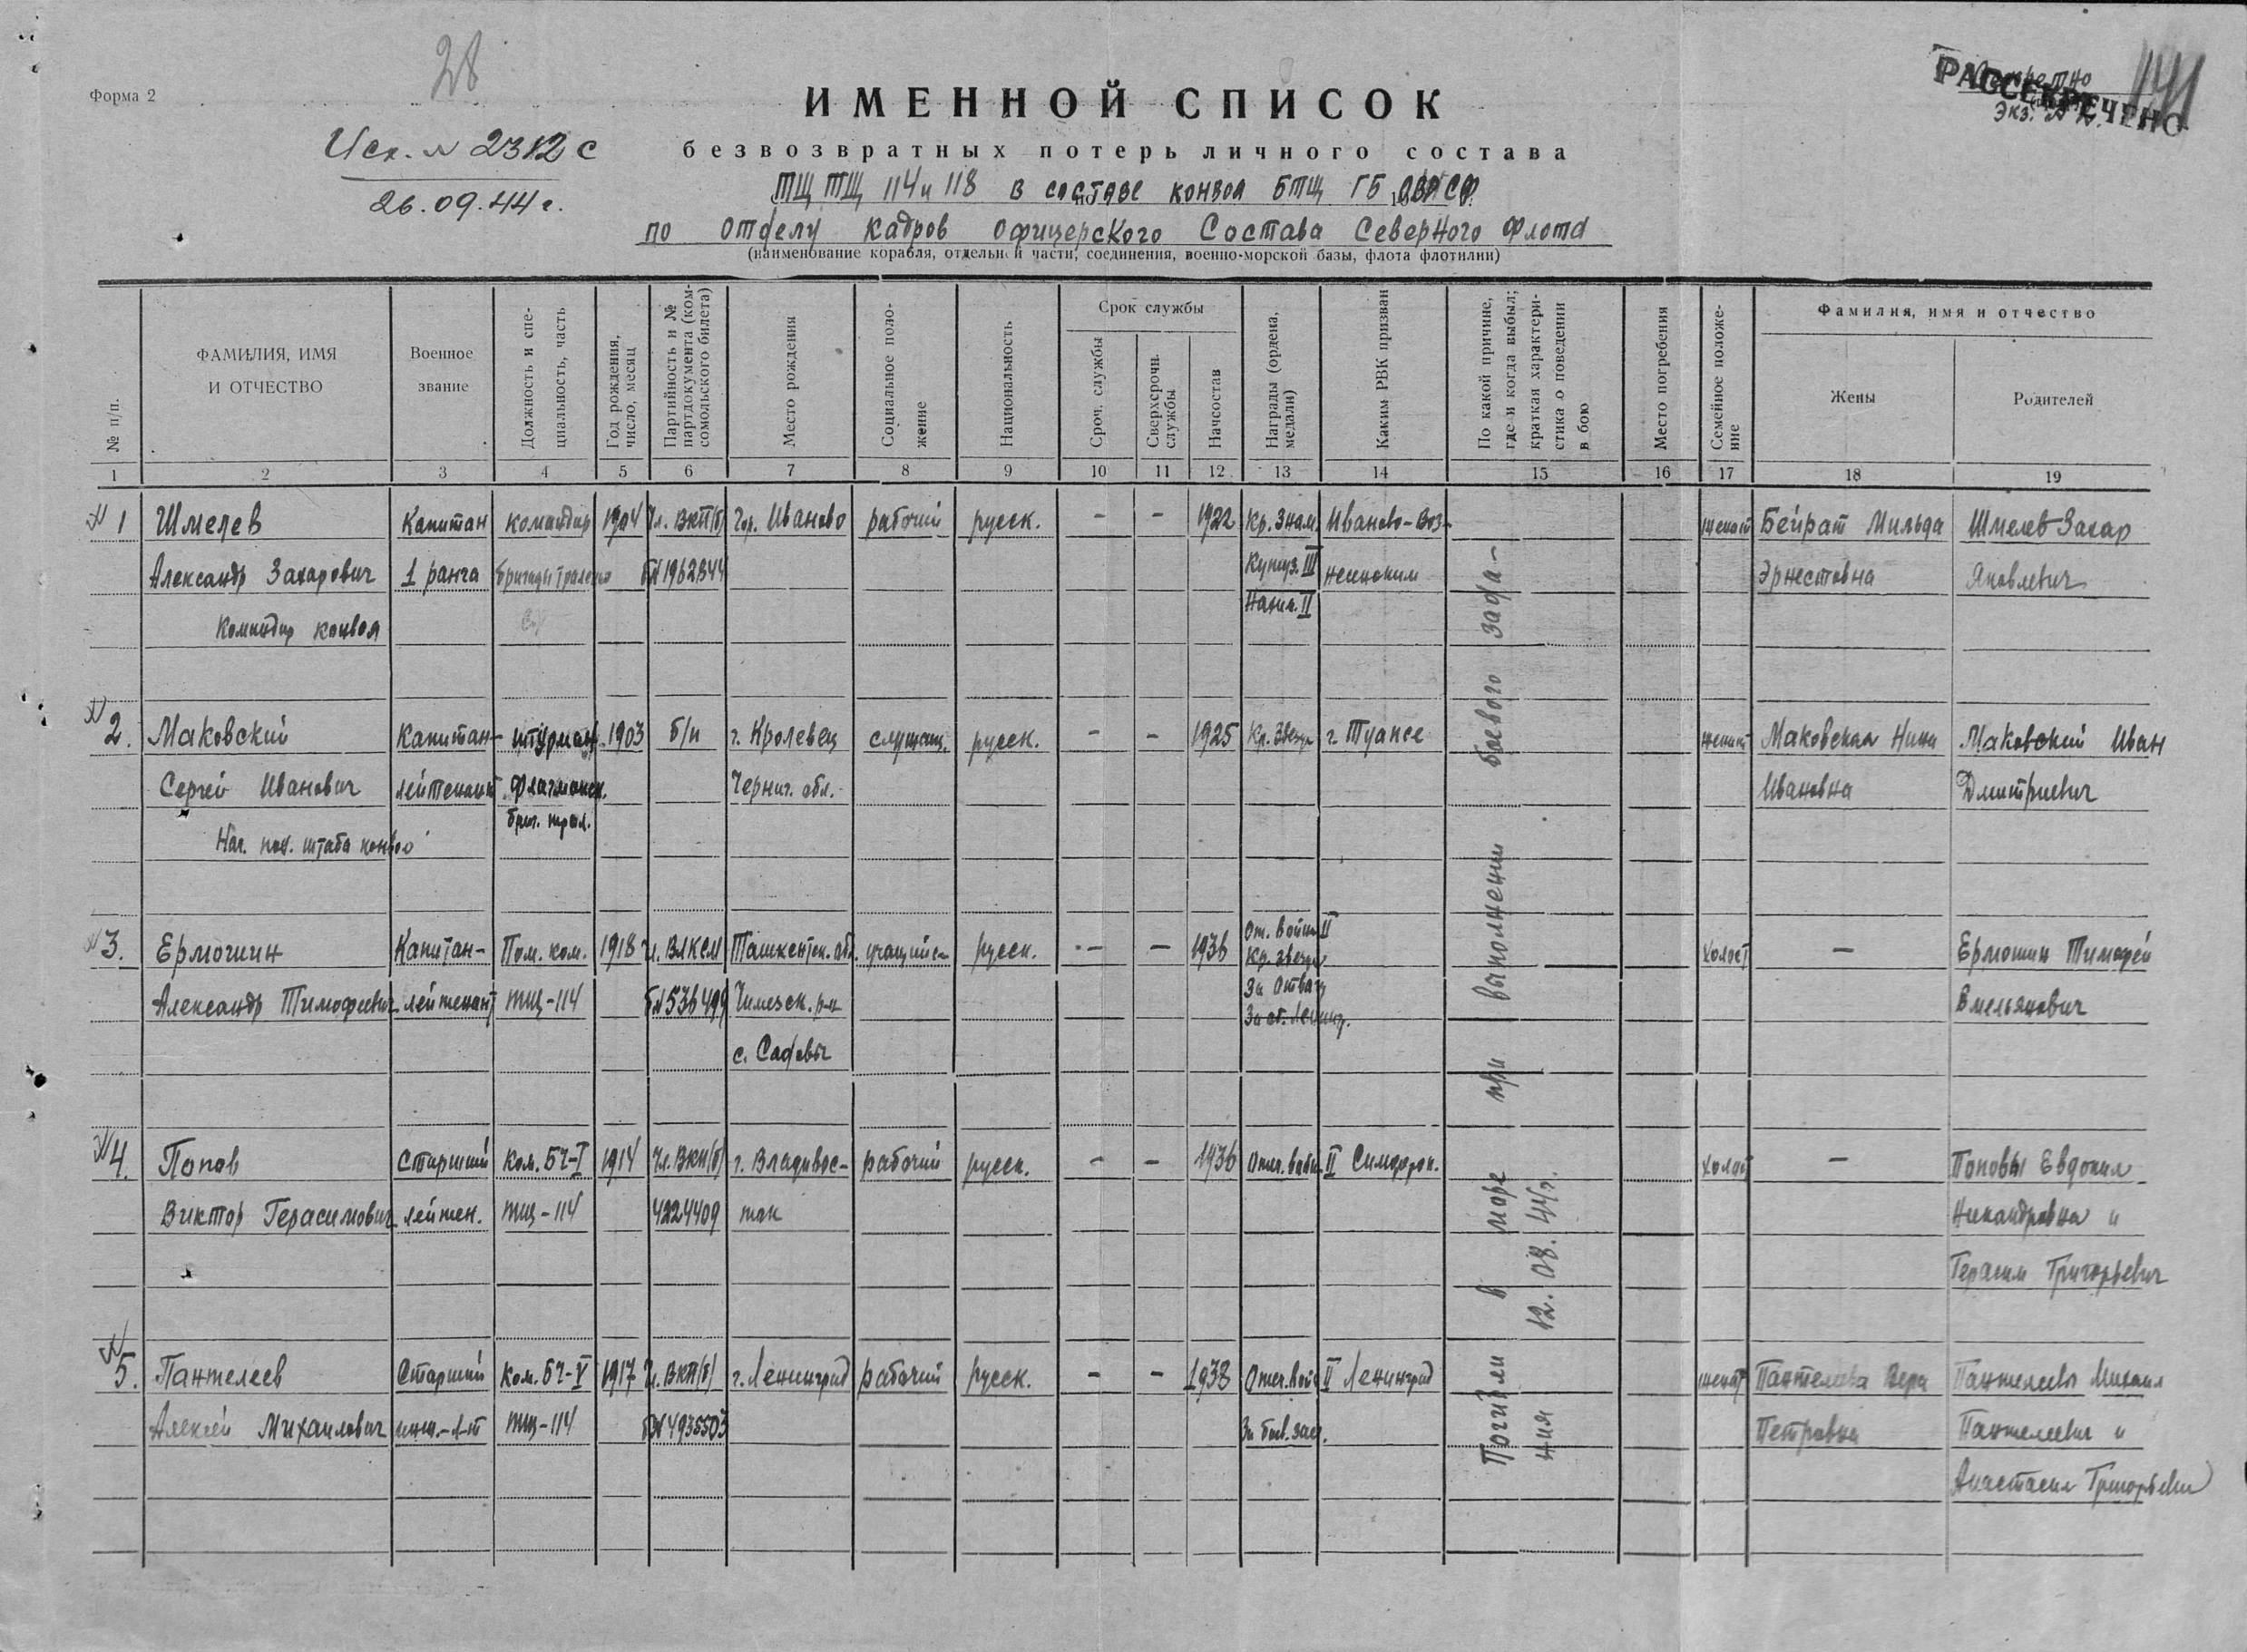 28
Форма 2
ИМЕННОЙ СПИСОК
Секретно
РАССЕКРЕЧЕНО
Экз. №
141
Исх. № 2312 с
26.09.44 г.
безвозвратных потерь личного состава
ТЩ ТЩ 114 и 118 в составе конвоя БТЩ ГБ ОВР СФ.
по отделу кадров офицерского Состава Северного Флота
(наименование корабля, отдельной части, соединения, военно-морской базы, флота флотилии)
№ п/п.
ФАМИЛИЯ, ИМЯ
И ОТЧЕСТВО
Военное
звание
Должность и спе-
циальность, часть
Год рождения,
число, месяц
Партийность и №
партдокумента (ком-
сомольского билета)
Место рождения
Социальное поло-
жение
Национальность
Срок службы
Сроч. службы
Сверхсрочн.
службы
Начсостав
Награды (ордена,
медали)
Каким РВК призван
По какой причине,
где и когда выбыл;
краткая характери-
стика о поведении
в бою
Место погребения
Семейное положе-
ние
Фамилия, имя и отчество
Жены
Родителей
1 2 3 4 5 6 7 8 9 10 11 12 13 14 15 16 17 18 19
1 Шмелев Капитан командир 1904 Чл. ВКП(б) Гор. Иваново рабочий русск. – – 1922 Кр. Знам. Иваново-Воз- женат Бейрат Мильда Шмелев Захар
Александр Захарович 1 ранга бригады трален. б№1962844 Кутуз. III несенским Эрнестовна Яковлевич
Командир конвоя Нахим. II
2. Маковский Капитан- штурман 1903 б/п г. Кролевец служащ. русск. – – 1925 Кр. Звезды г. Туапсе женат Маковская Нина Маковский Иван
Сергей Иванович лейтенант флагманск. Черниг. обл. Ивановна Дмитриевич
Нач. пох. штаба конвоя бриг. трал.
От. войны II
3. Ермошин Капитан- Пом. ком. 1918 Чл. ВЛКСМ Ташкентск. обл. учащийся русск. – – 1936 Кр. звезды холост – Ермошин Тимофей
Александр Тимофеевич лейтенант ТЩ-114 б№536499 р-н За Отвагу Емельянович
За об. Ленинг.
с.
4. Попов Старший Ком. БЧ-I 1914 Чл. ВКП(б) г. Владивос- рабочий русск. – – 1936 Отеч. войны II Симфероп. холост – Поповы Евдокия
Виктор Герасимович лейтен. ТЩ-114 4224409 ток Никандровна и
Герасим Григорьевич
5. Пантелеев Старший Ком. БЧ-V 1917 Чл. ВКП(б) г. Ленинград рабочий русск. – – 1938 Отеч. войн II Ленинград женат Пантелеева Вера Пантелеевы Михаил
Алексей Михайлович инж.-л-т ТЩ-114 б№4935503 За боев. засл. Петровна Пантелеевич и
Анастасия Григорьевна
Погибли в море при выполнении боевого зада-
ния 12.08.44г.